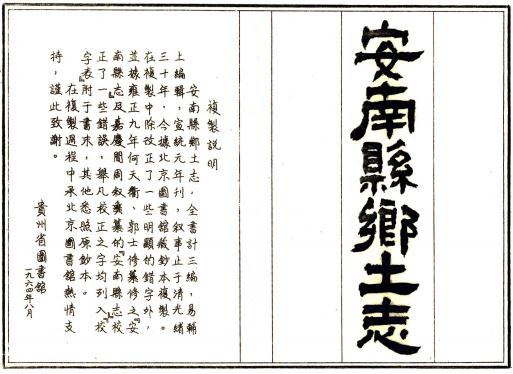 安南縣鄉土志
複製說明
安南縣鄉土志，全書計三編，易輔
上編輯，宣統元年刊，叙事止于清光緒
三十年，今據北京圖書館藏鈔本複製。
在複製中除改正了一些明顯的錯字外，
並據雍正九年何天衢、郭士修纂修之《安
南縣志》及嘉慶間周叙彜纂的《安南縣志》校
正了一些錯誤，舉凡校正之字均列入《校
字表》附于書末，其他悉照原鈔本。
在複製過程中承北京圖書館熱情支
持，謹此致謝。
貴州省圖書館
一九六四年八月